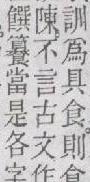 訓爲具食。則食
陳。不言古文作
饌籑當是各字